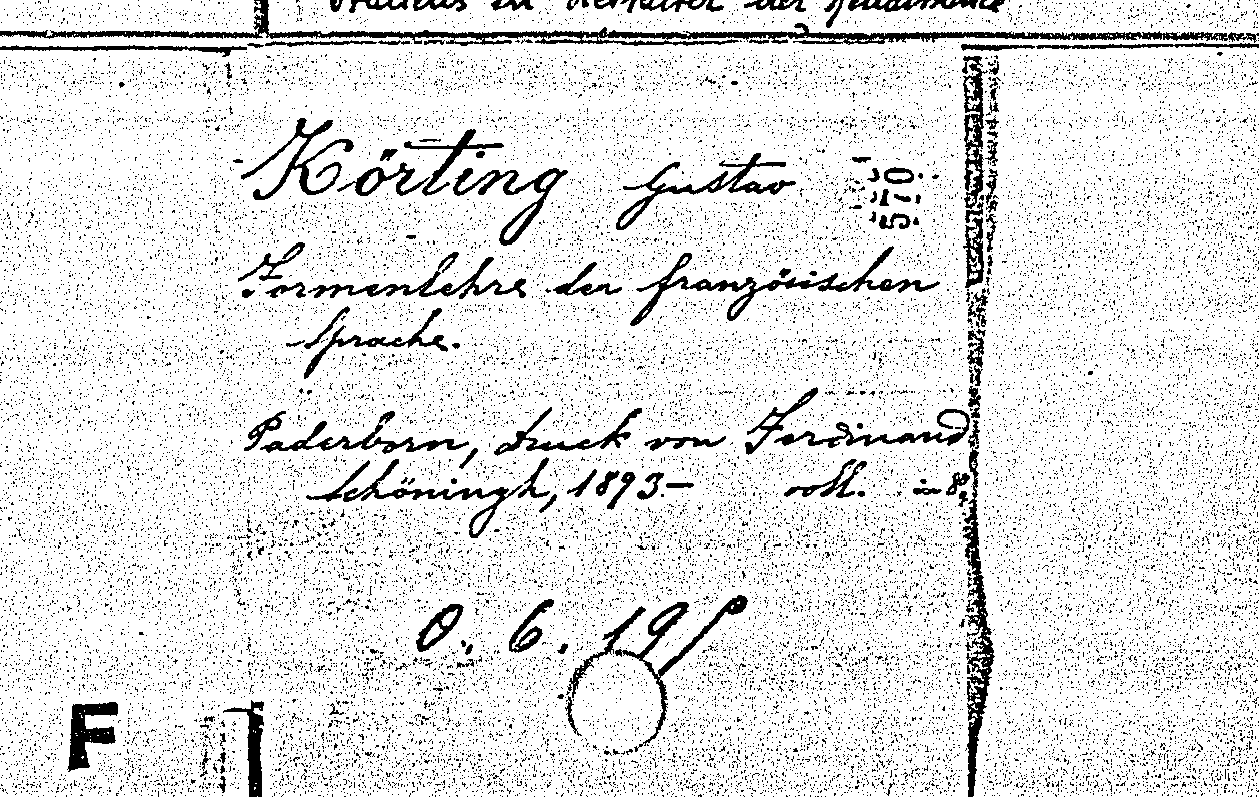 Körting Gustav
570
Formenlehre der französischen
Sprache.
Paderborn, druck von Ferdinand
Schöningh, 1893.— voll. in 8°
O. 6. 19
F